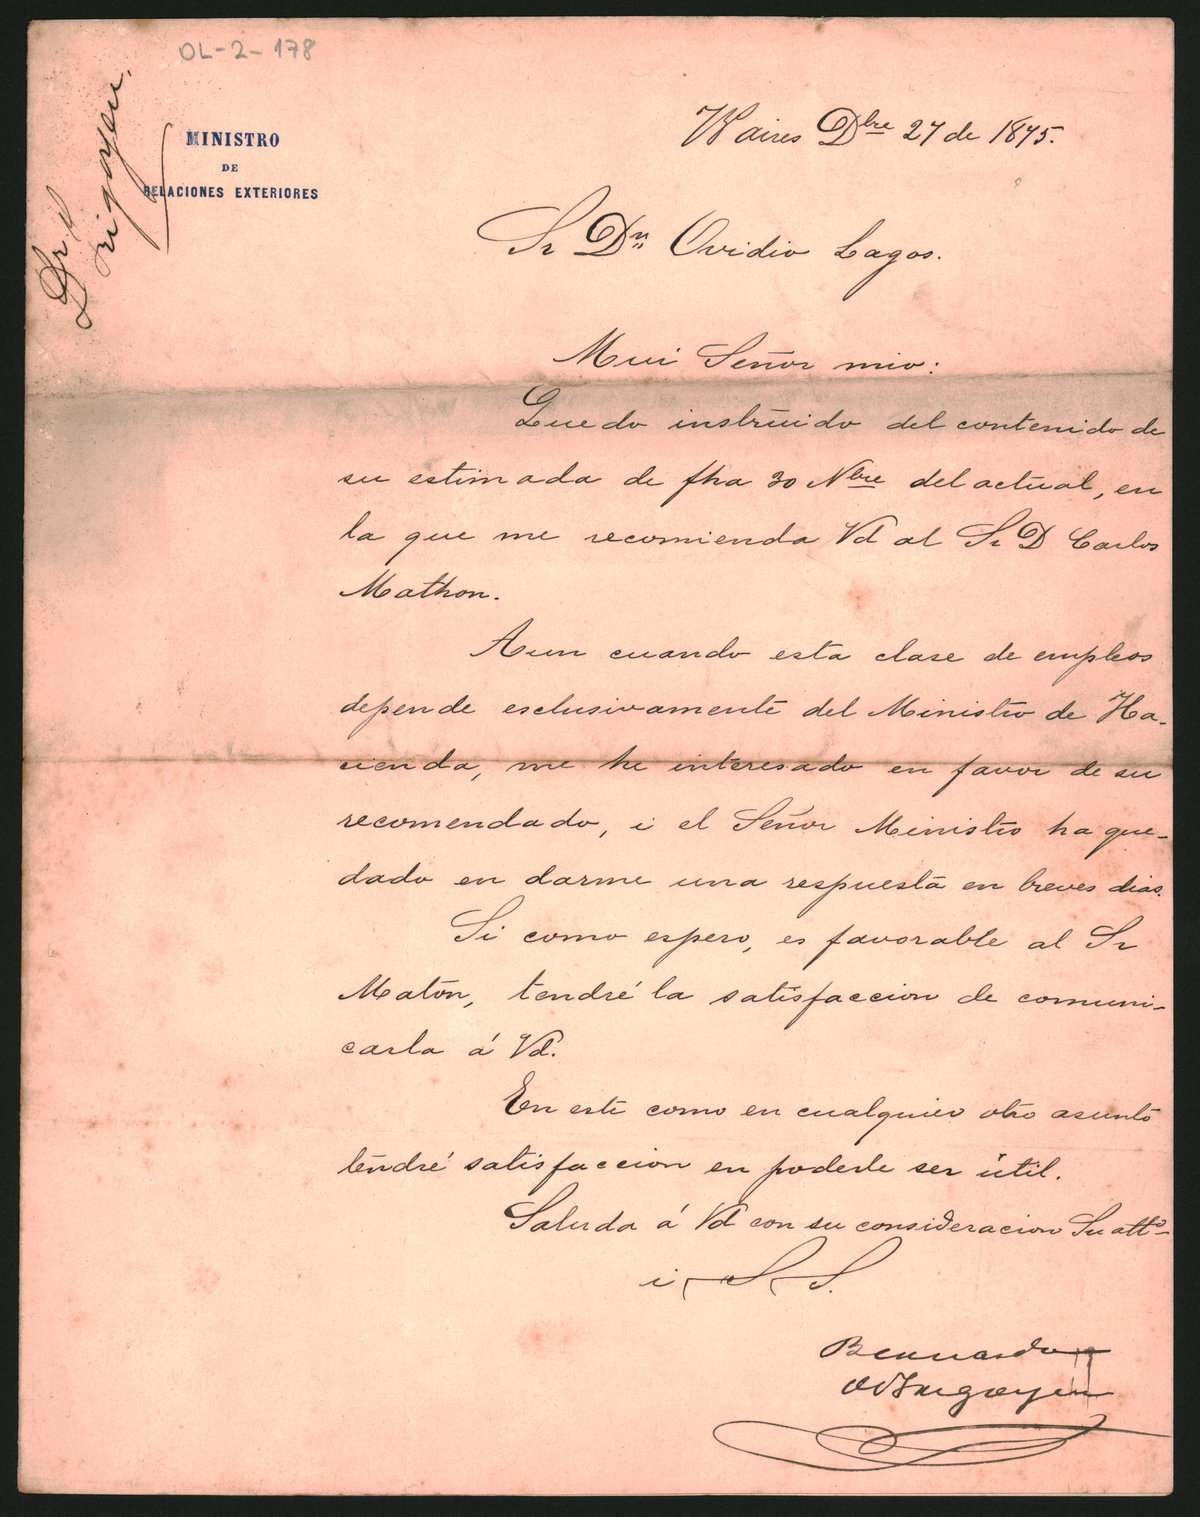 OL-2-178
Dr Irigoyen.
MINISTRO
DE
RELACIONES EXTERIORES
Bs aires Dbre 27 de 1875.
Sr Dn Ovidio Lagos.
Mui Señor mio:
Quedo instruido del contenido de
su estimada de fha 30 Nbre del actual, en
la que me recomienda Vd al Sr D Carlos
Mathon.
Aun cuando esta clase de empleos
depende esclusivamente del Ministro de Ha-
cienda, me he interesado en favor de su
recomendado, i el Señor Ministro ha que-
dado en darme una respuesta en breves dias.
Si como espero, es favorable al Sr
Maton, tendré la satisfaccion de comuni-
carla á Vd.
En este como en cualquier otro asunto
tendré satisfaccion en poderle ser útil.
Saluda á Vd con su consideracion Su atto
i S. S.
Bernardo
de Irigoyen